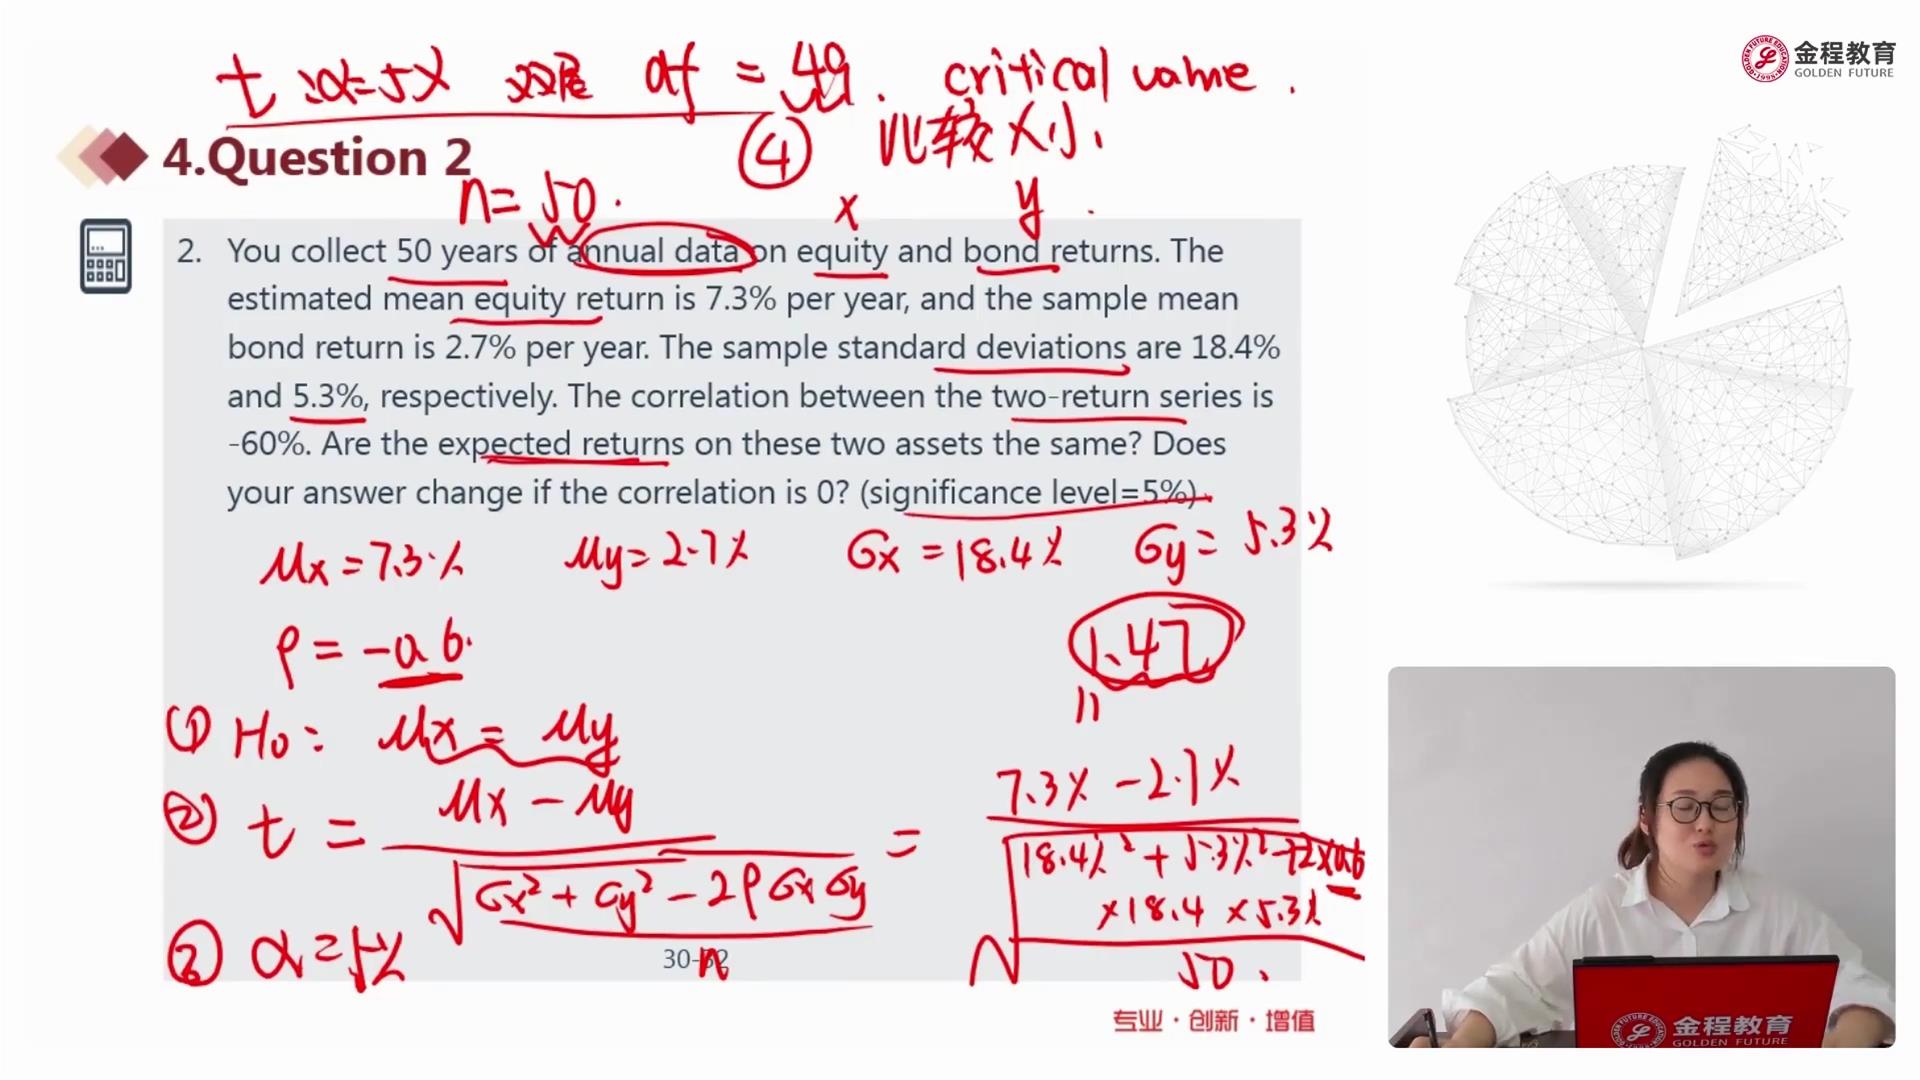 t α=5% 双尾 df = 49. critical value.
④ 比较大小.
金程教育
GOLDEN FUTURE
4.Question 2
n=50.
x y
2. You collect 50 years of annual data on equity and bond returns. The
estimated mean equity return is 7.3% per year, and the sample mean
bond return is 2.7% per year. The sample standard deviations are 18.4%
and 5.3%, respectively. The correlation between the two-return series is
-60%. Are the expected returns on these two assets the same? Does
your answer change if the correlation is 0? (significance level=5%)
μx=7.3% μy=2.7% σx=18.4% σy=5.3%
ρ=-0.6.
1.47
① H0: μx = μy
② t = μx - μy = 7.3% - 2.7%
√ σx² + σy² - 2ρσxσy
n
18.4%² + 5.3%² +2×0.6
×18.4 ×5.3%
50.
③ α=5%
专业·创新·增值
金程教育
GOLDEN FUTURE